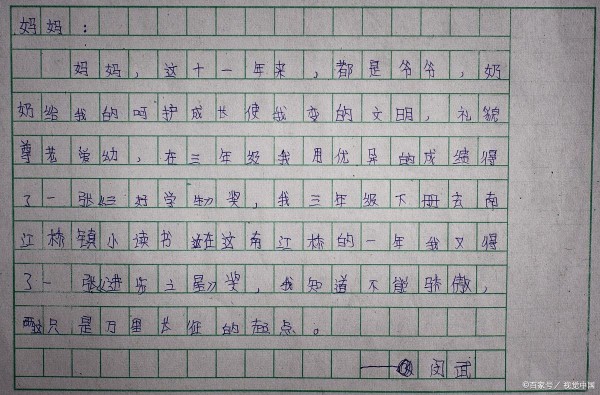 妈妈：
妈妈，这十一年来，都是爷爷，奶
奶给我的呵护成长使我变的文明，礼貌
尊老爱幼，在三年级我用优异的成绩得
了一张《三好学生》奖，我三年级下册去南
江桥镇小读书 在这南江桥的一年我又得
了一张《进步之星》奖，我知道不能骄傲，
这只是万里长征的起点。
——闵武
©百家号／视觉中国